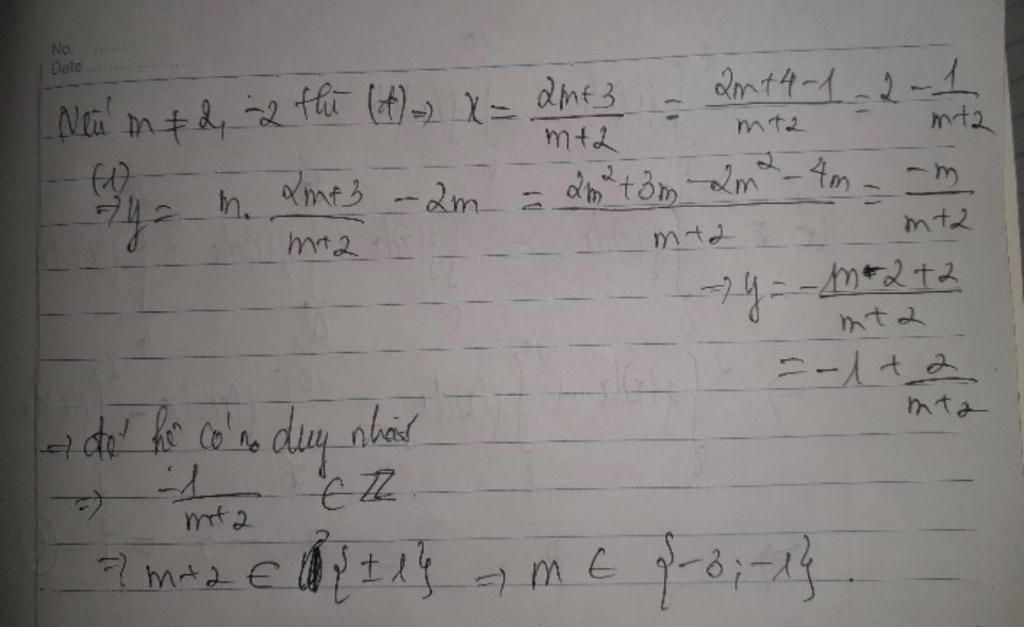 No.
Date
Nếu m ≠ 2, -2 thì (*) => x = \frac{2m+3}{m+2} = \frac{2m+4-1}{m+2} = 2 - \frac{1}{m+2}
(1) => y = m. \frac{2m+3}{m+2} - 2m = \frac{2m²+3m-2m²-4m}{m+2} = \frac{-m}{m+2}
=> y = \frac{-m-2+2}{m+2}
= -1 + \frac{2}{m+2}
=> để hệ có no duy nhất
=> \frac{-1}{m+2} ∈ ℤ
=> m+2 ∈ {±1} => m ∈ {-3; -1}.